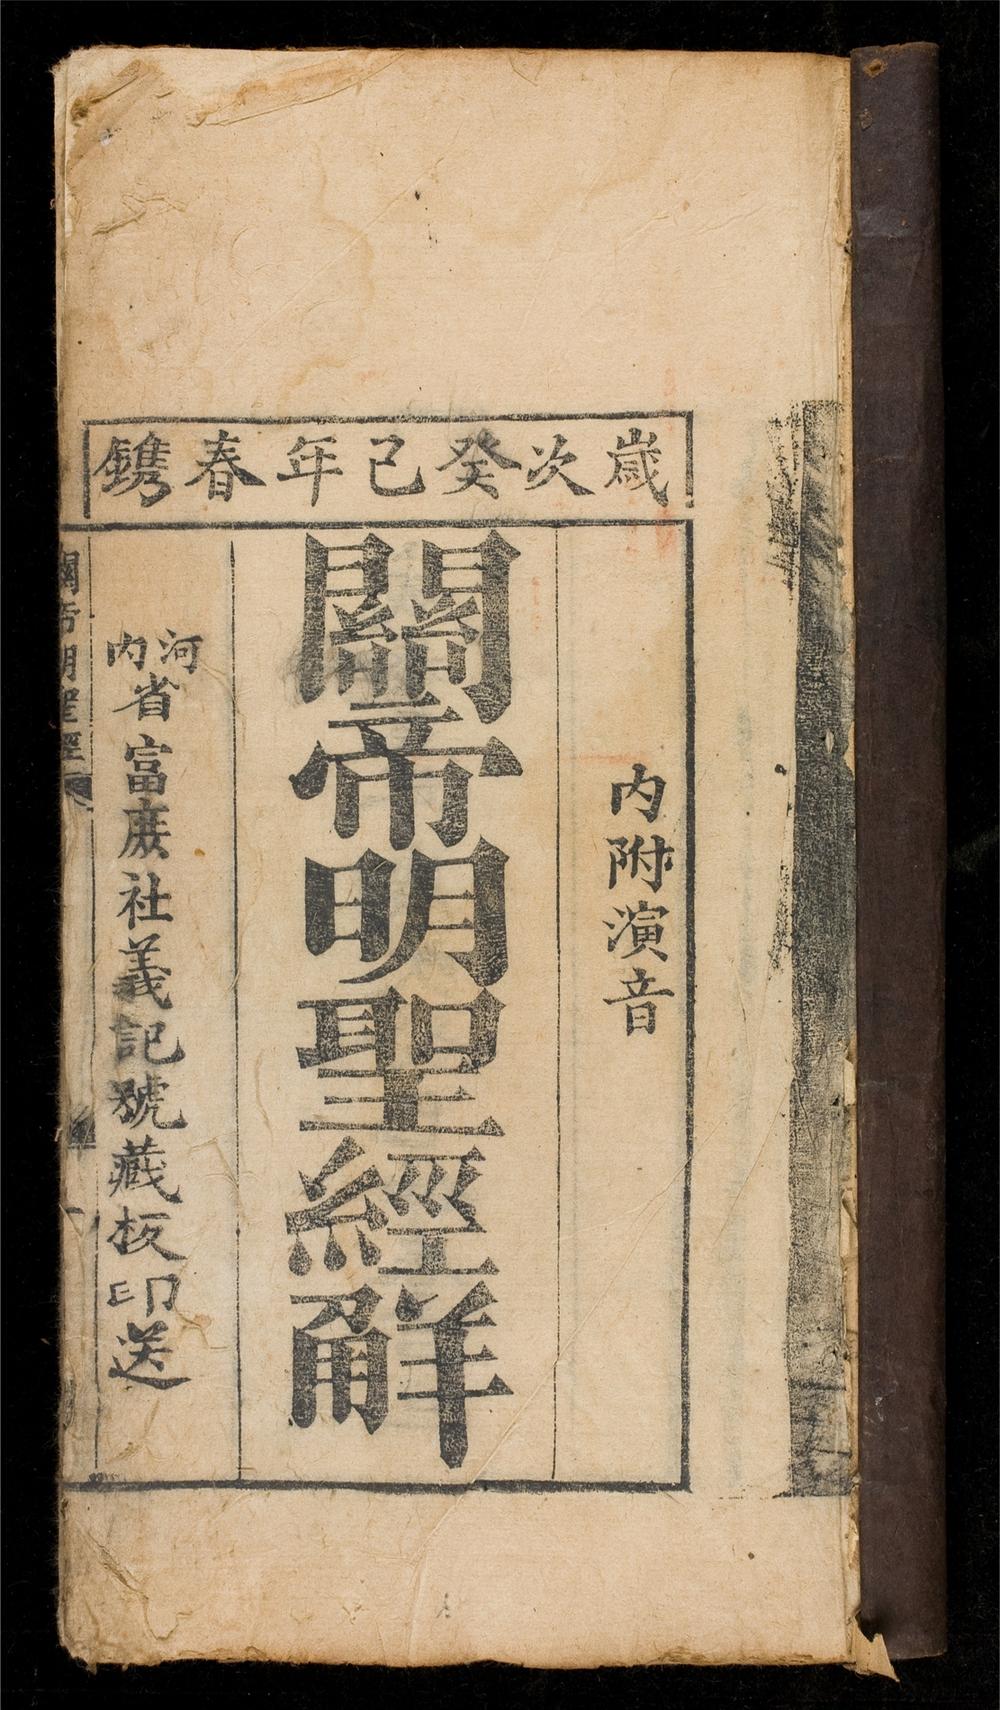 歲次癸巳年春鐫
内附演音
關帝明聖經觧
河内省富庻社義記號藏板印送
關帝明聖經